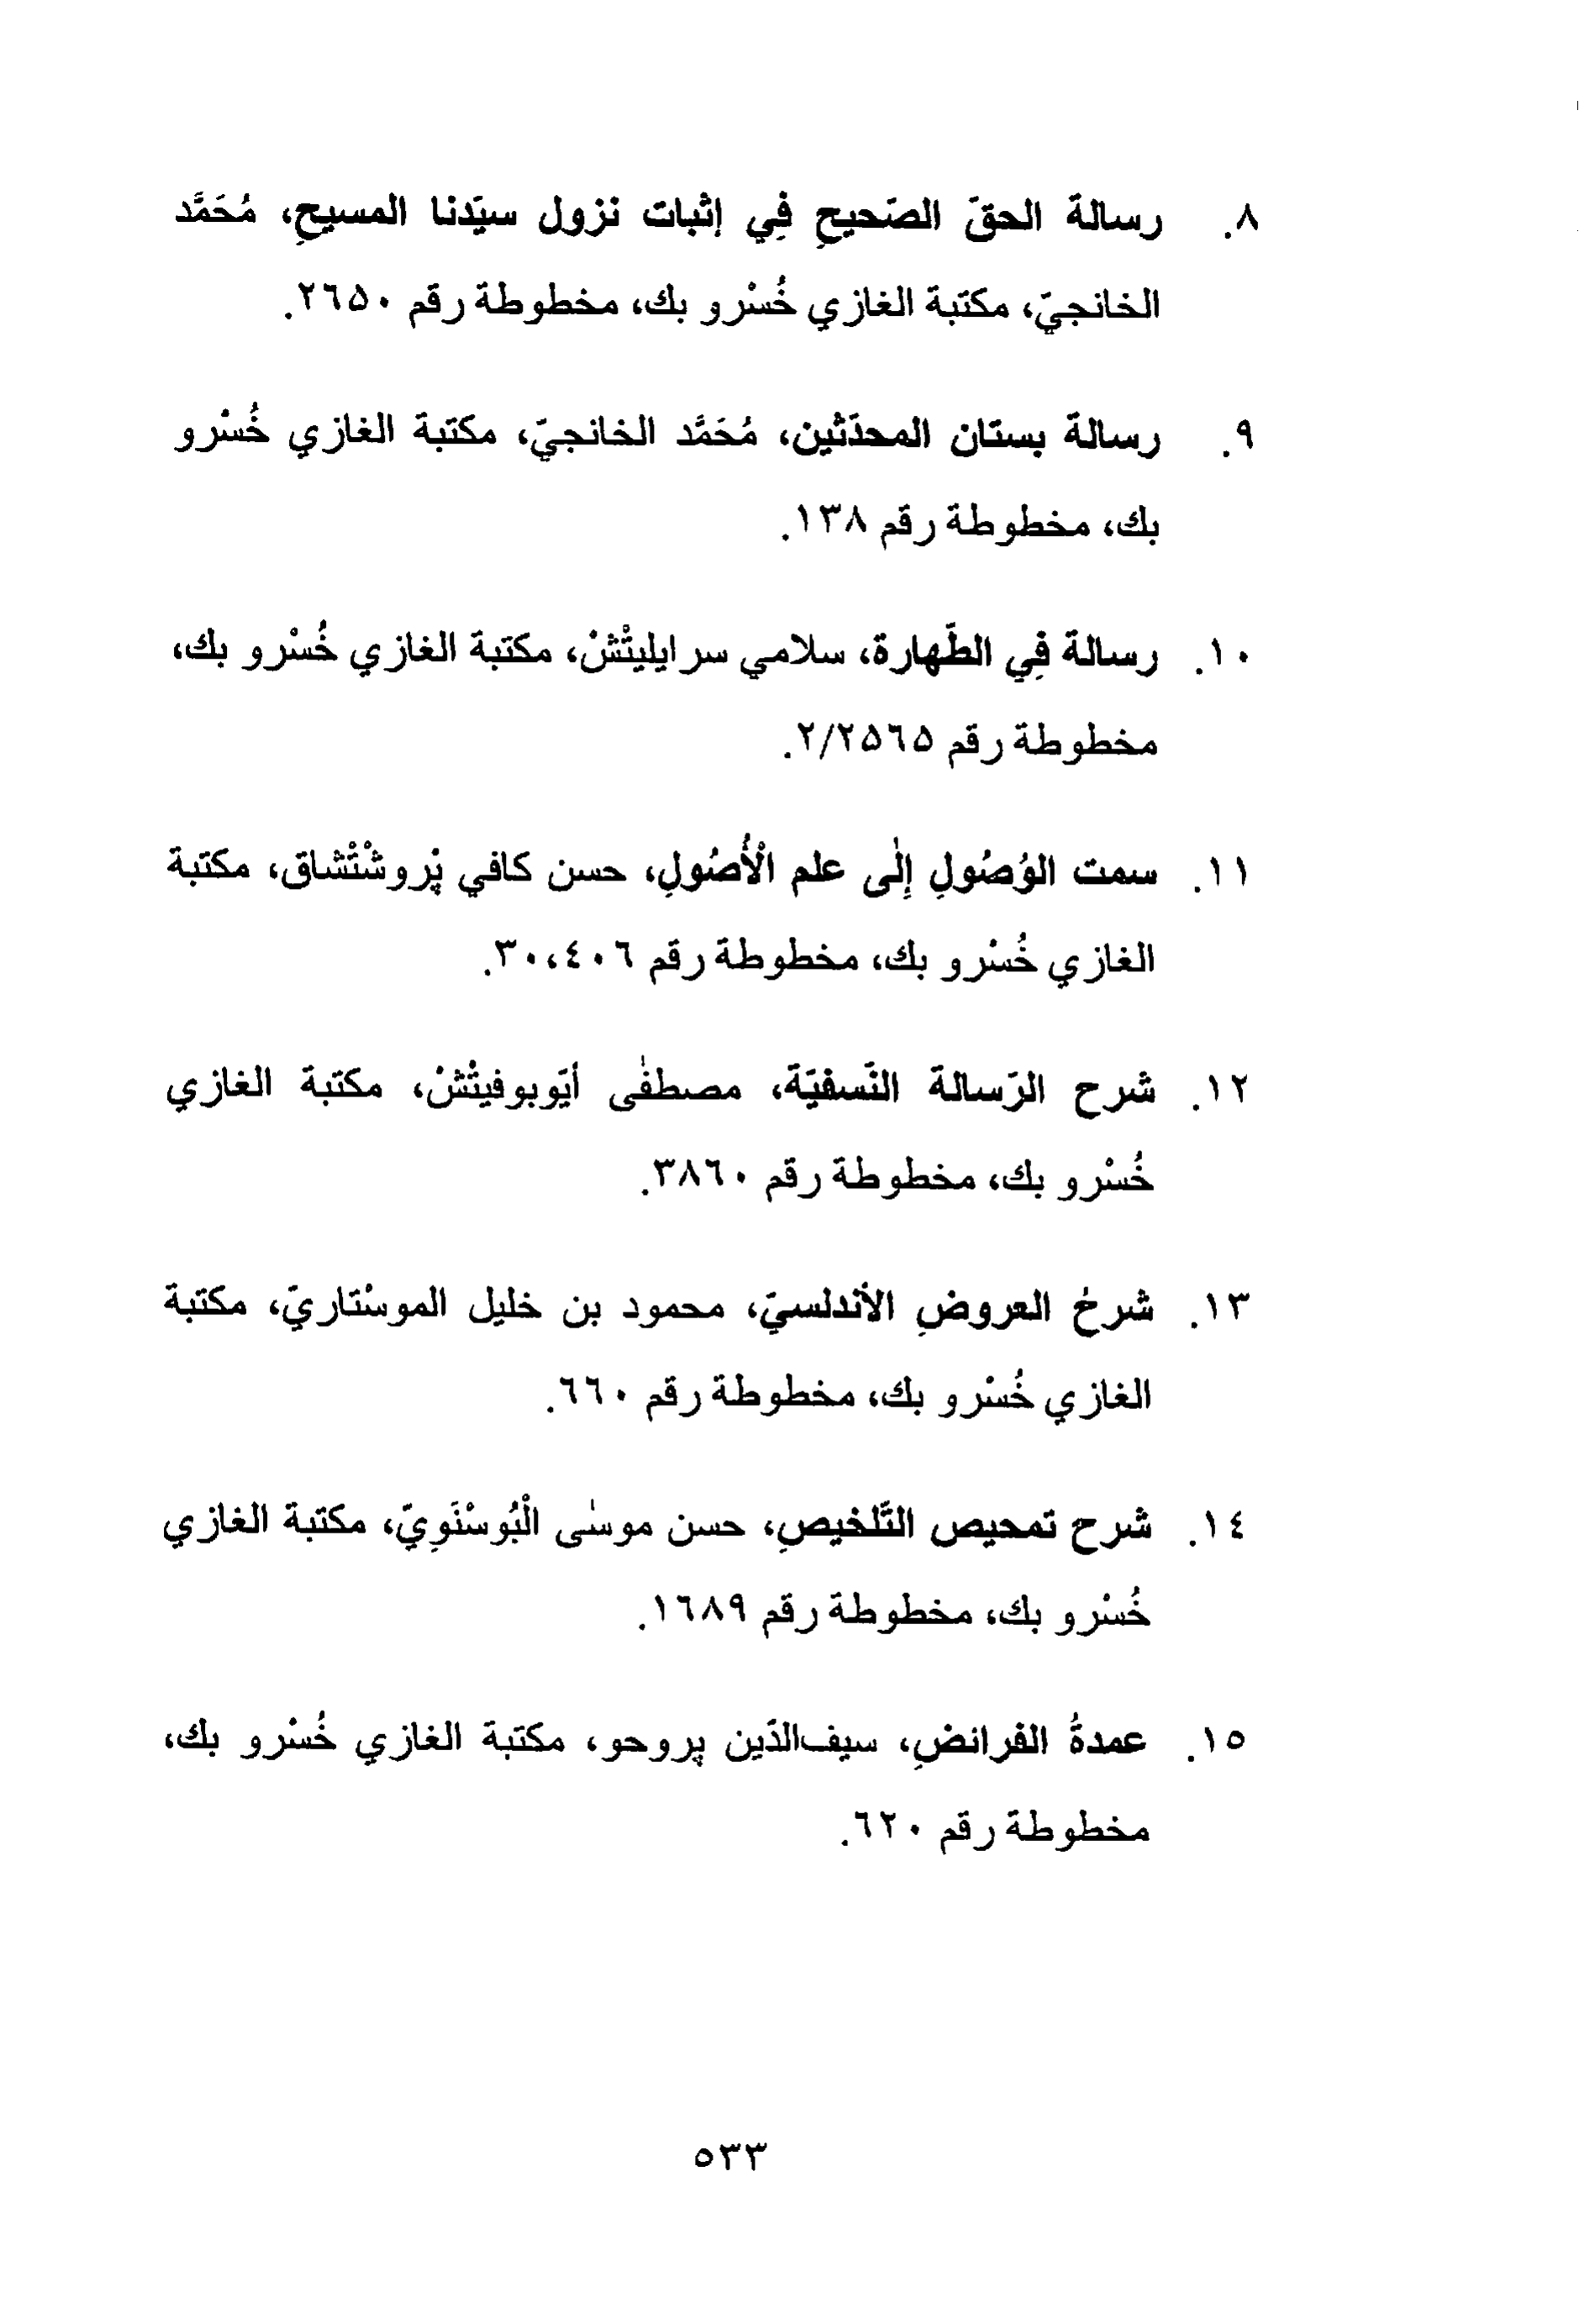 ٨. رسالة الحقّ الصّحيحِ فِي إثبات نزول سيّدنا المسيحِ، مُحَمَّد
الخانجيّ، مكتبة الغازي خُسْرو بك، مخطوطة رقم ٢٦٥٠.
٩. رسالة بستان المحدّثين، مُحَمَّد الخانجيّ، مكتبة الغازي خُسْرو
بك، مخطوطة رقم ١٣٨.
١٠. رسالة فِي الطّهارة، سلامي سرايليتْشْ، مكتبة الغازي خُسْرو بك،
مخطوطة رقم ٢/٢٥٦٥.
١١. سمت الوُصُولِ إِلٰى علم الْأُصُولِ، حسن كافي پْروشْتْشاق، مكتبة
الغازي خُسْرو بك، مخطوطة رقم ٣٠،٤٠٦.
١٢. شرح الرّسالة النّسفيّة، مصطفٰى أيّوبوفيتْشْ، مكتبة الغازي
خُسْرو بك، مخطوطة رقم ٣٨٦٠.
١٣. شرحُ العروضِ الأندلسيّ، محمود بن خليل الموسْتاريّ، مكتبة
الغازي خُسْرو بك، مخطوطة رقم ٦٦٠.
١٤. شرح تمحيص التّلخيصِ، حسن موسٰى الْبُوسْنَوِيّ، مكتبة الغازي
خُسْرو بك، مخطوطة رقم ١٦٨٩.
١٥. عمدةُ الفرائضِ، سيف‌الدّين پروحو، مكتبة الغازي خُسْرو بك،
مخطوطة رقم ٦٢٠.
٥٣٣